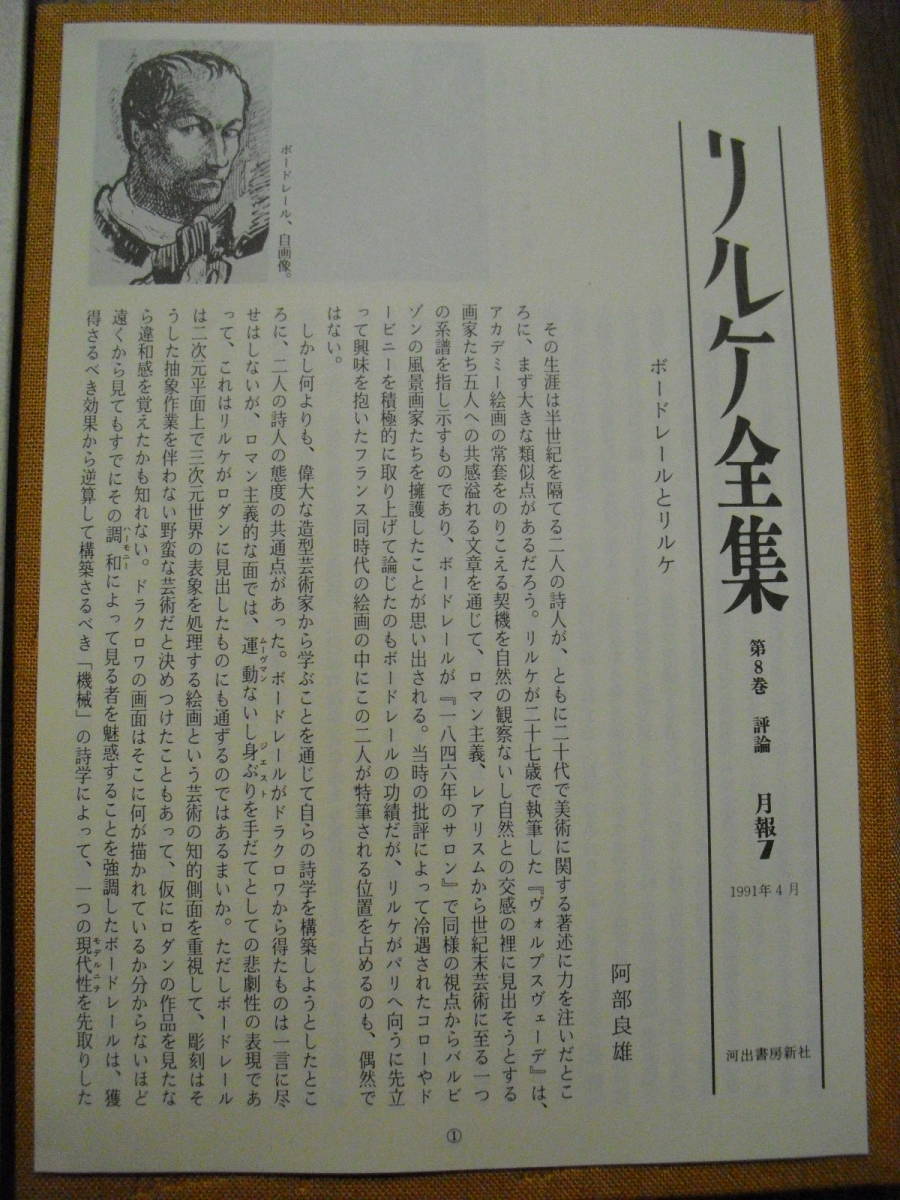 リルケ全集
第8巻 評論 月報7
1991年4月
河出書房新社
ボードレールとリルケ
阿部良雄
その生涯は半世紀を隔てる二人の詩人が、ともに二十代で美術に関する著述に力を注いだとこ
ろに、まず大きな類似点があるだろう。リルケが二十七歳で執筆した『ヴォルプスヴェーデ』は、
アカデミー絵画の常套をのりこえる契機を自然の観察ないし自然との交感の裡に見出そうとする
画家たち五人への共感溢れる文章を通じて、ロマン主義、レアリスムから世紀末芸術に至る一つ
の系譜を指し示すものであり、ボードレールが『一八四六年のサロン』で同様の視点からバルビ
ゾンの風景画家たちを擁護したことが思い出される。当時の批評によって冷遇されたコローやド
ービニーを積極的に取り上げて論じたのもボードレールの功績だが、リルケがパリへ向うに先立
って興味を抱いたフランス同時代の絵画の中にこの二人が特筆される位置を占めるのも、偶然で
はない。
しかし何よりも、偉大な造型芸術家から学ぶことを通じて自らの詩学を構築しようとしたとこ
ろに、二人の詩人の態度の共通点があった。ボードレールがドラクロワから得たものは一言に尽
せはしないが、ロマン主義的な面では、運動ムーヴマンないし身ぶりジェストを手だてとしての悲劇性の表現であ
って、これはリルケがロダンに見出したものにも通ずるのではあるまいか。ただしボードレール
は二次元平面上で三次元世界の表象を処理する絵画という芸術の知的側面を重視して、彫刻はそ
うした抽象作業を伴わない野蛮な芸術だと決めつけたこともあって、仮にロダンの作品を見たな
ら違和感を覚えたかも知れない。ドラクロワの画面はそこに何が描かれているか分からないほど
遠くから見てもすでにその調和ハーモニーによって見る者を魅惑することを強調したボードレールは、獲
得さるべき効果から逆算して構築さるべき「機械」の詩学によって、一つの現代性モデルニテを先取りした
ボードレール、自画像。
①